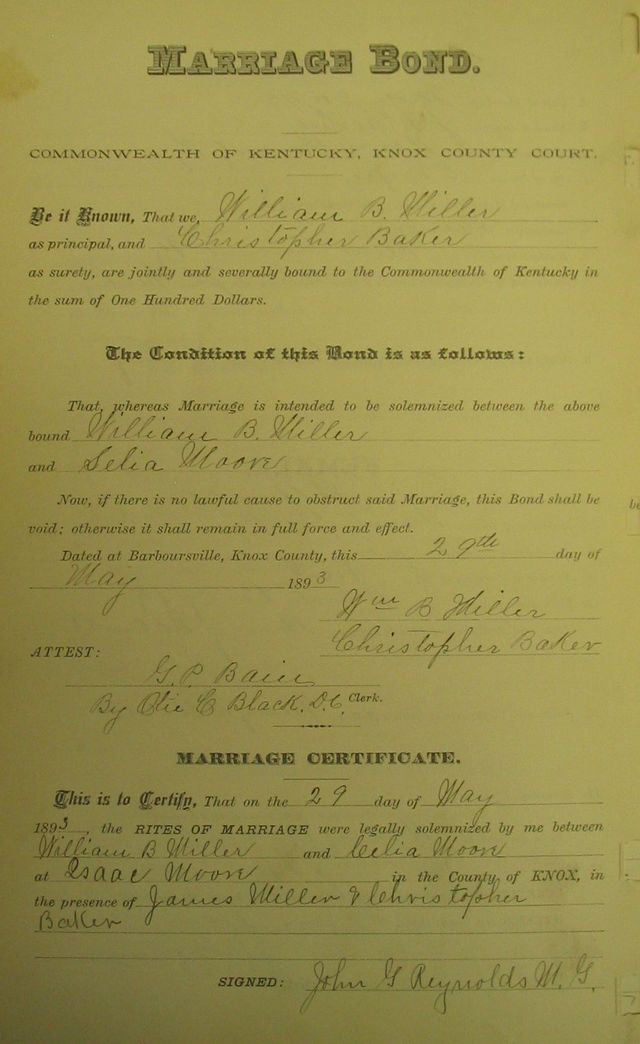 MARRIAGE BOND.
COMMONWEALTH OF KENTUCKY, KNOX COUNTY COURT.
Be it Known, That we, William B. Miller
as principal, and Christopher Baker
as surety, are jointly and severally bound to the Commonwealth of Kentucky in
the sum of One Hundred Dollars.
The Condition of this Bond is as follows:
That, whereas Marriage is intended to be solemnized between the above
bound William B. Miller
and Selia Moore
Now, if there is no lawful cause to obstruct said Marriage, this Bond shall be
void; otherwise it shall remain in full force and effect.
Dated at Barboursville, Knox County, this 29th day of
May 1893
Wm B Miller
Christopher Baker
ATTEST:
G. P. Bain
By Olie C Black, D.C. Clerk.
MARRIAGE CERTIFICATE.
This is to Certify, That on the 29 day of May
1893, the RITES OF MARRIAGE were legally solemnized by me between
William B Miller and Celia Moore
at Isaac Moore in the County of KNOX, in
the presence of James Miller & Christopher
Baker
SIGNED: John G Reynolds M. G.